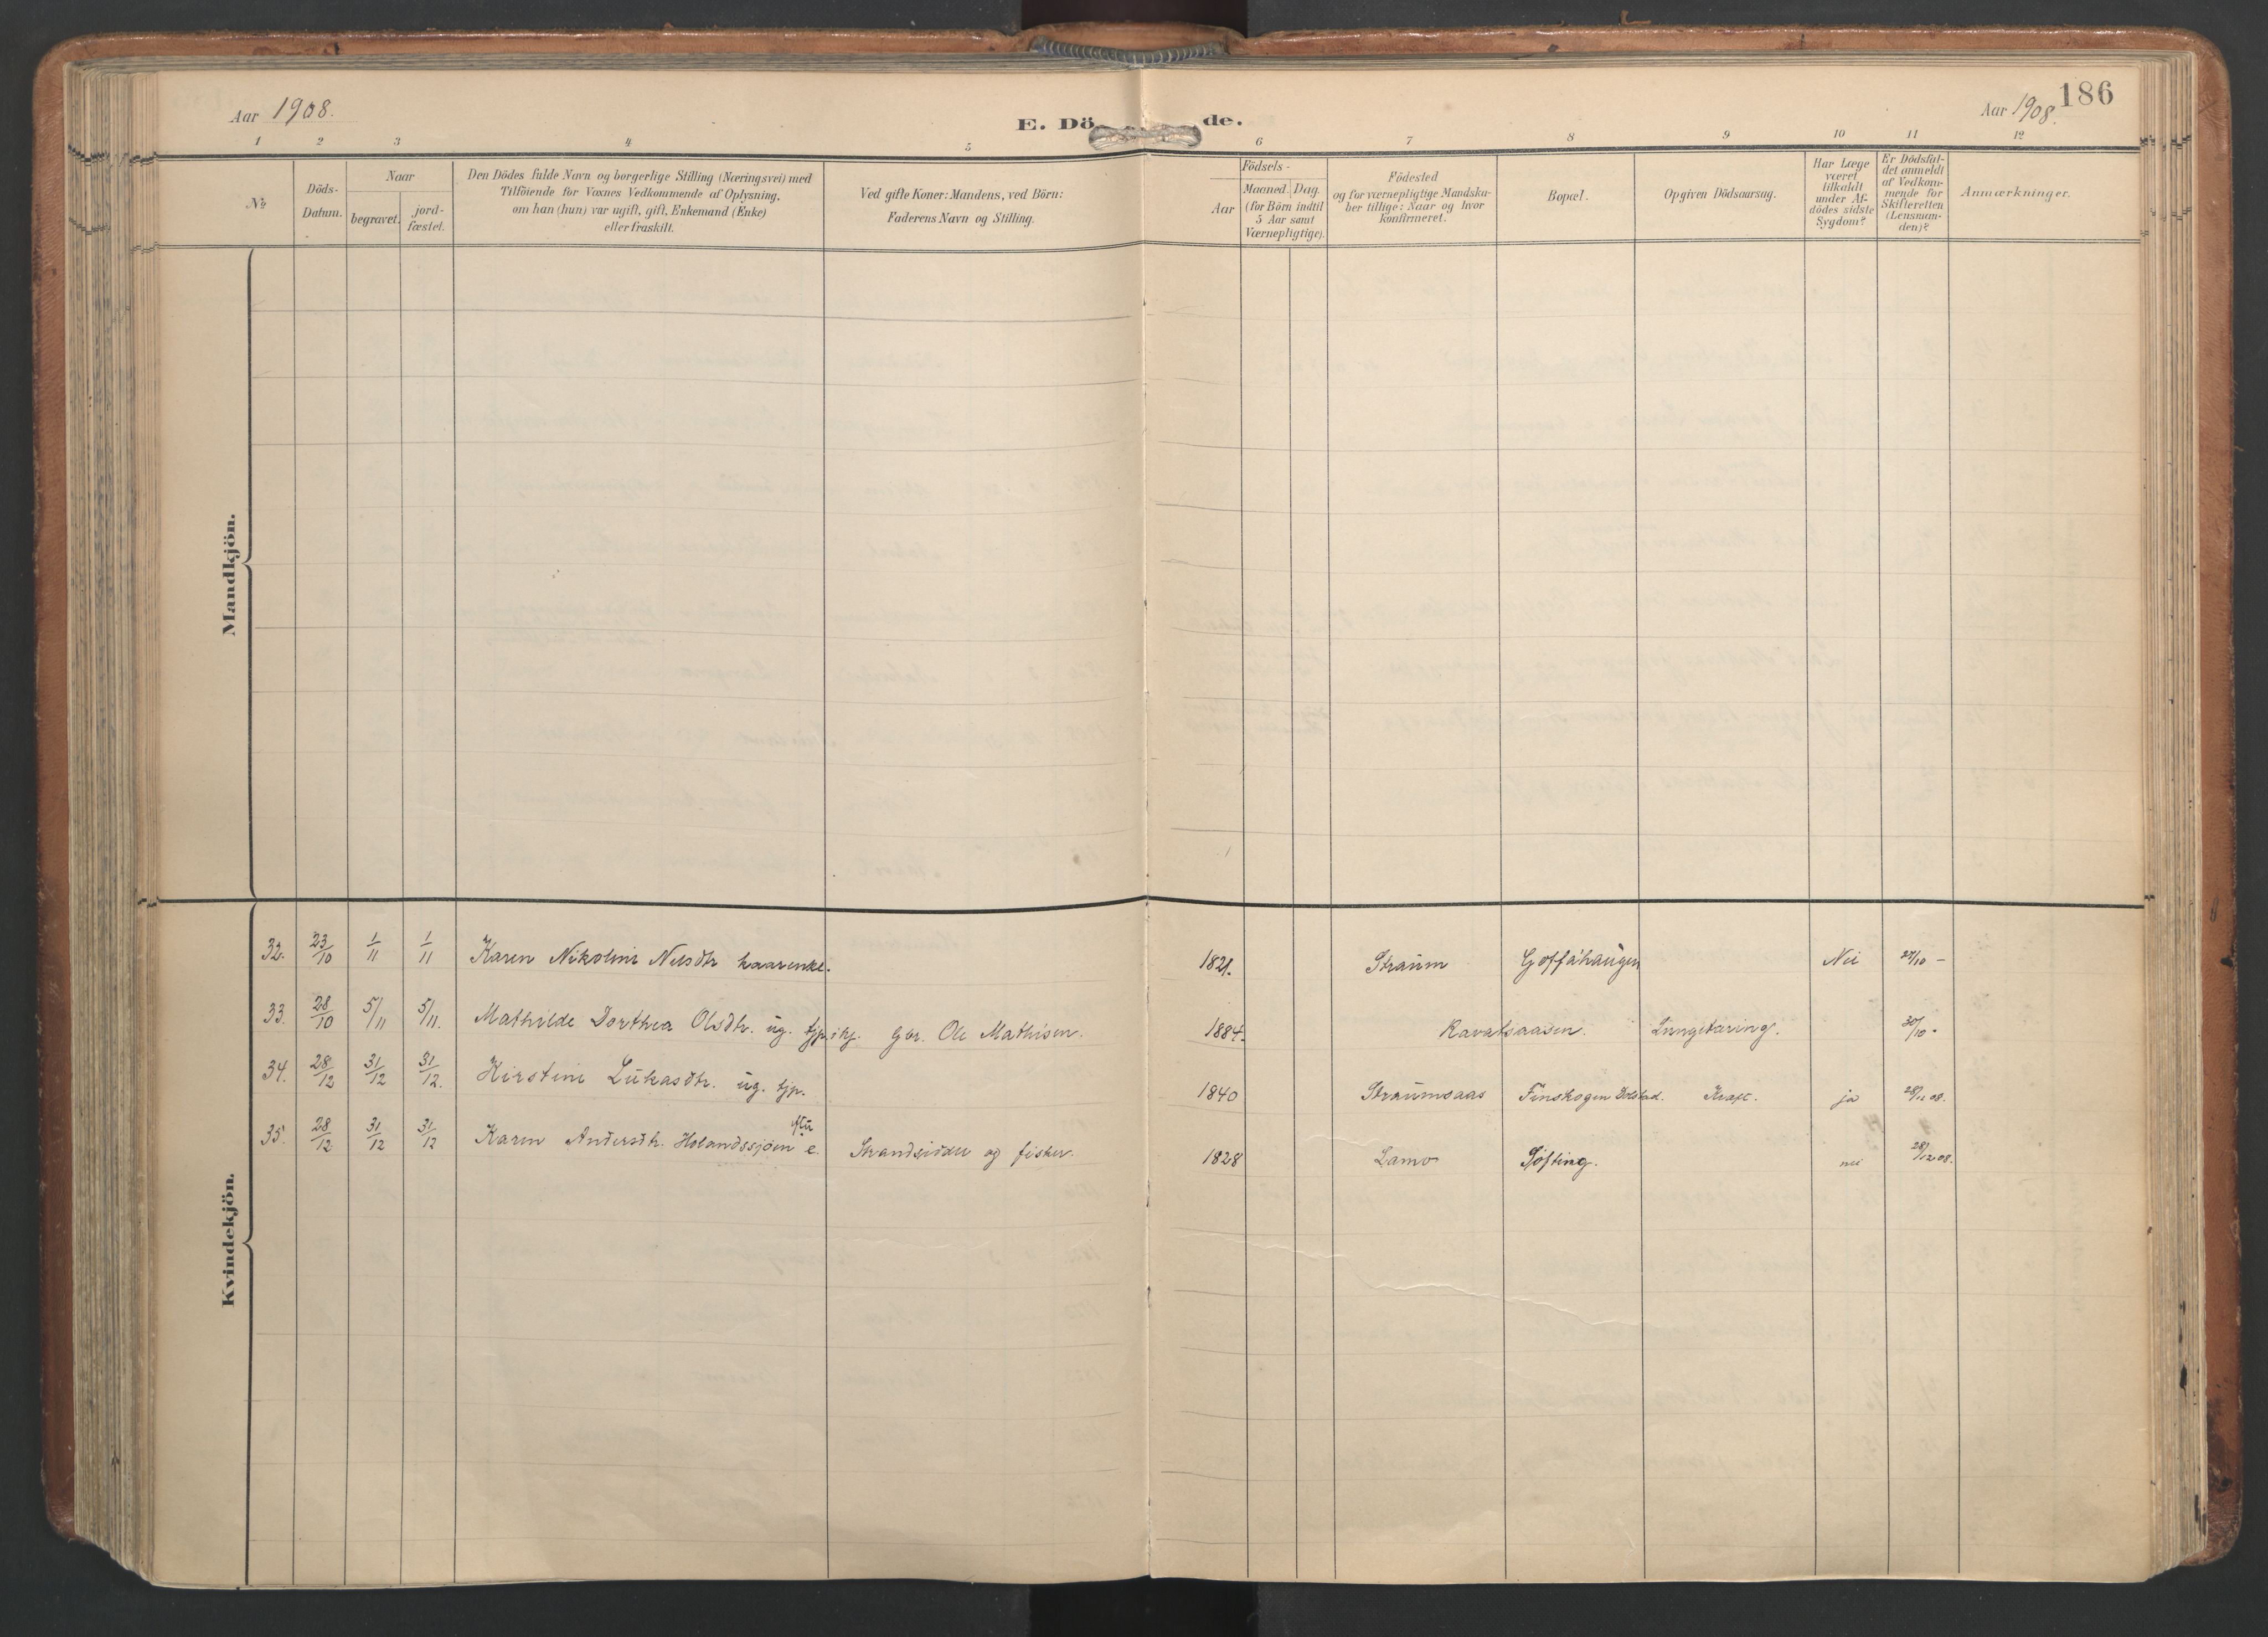 Aar 1908.
E. Dö de.
Aar 1908.
186
1 2 3 4 5 6 7 8 9 10 11 12
No
Döds-
Datum.
Naar
begravet.
jord-
fæstet.
Den Dödes fulde Navn og borgerlige Stilling (Næringsvei) med
Tilföiende for Voxnes Vedkommende af Oplysning,
om han (hun) var ugift, gift, Enkemand (Enke)
eller fraskilt.
Ved gifte Koner: Mandens, ved Börn:
Faderens Navn og Stilling.
Födsels-
Aar
Maaned. Dag.
(for Börn indtil
5 Aar samt
Værnepligtige).
Födested
og for værnepligtige Mandska-
ber tillige: Naar og hvor
konfirmeret.
Bopæl.
Opgiven Dödsaarsag.
Har Læge
været
tilkaldt
under Af-
dödes sidste
Sygdom?
Er Dödsfal-
det anmeldt
af Vedkom-
mende for
Skifteretten
(Lensman-
den)?
Anmærkninger.
Mandkjön.
Kvindekjön.
32. 23/10 1/11 1/11 Karen Nikoline Nilsdtr kaarenke. 1821. Straum Goffahaugen Nei 27/10 –
33. 28/10 5/11 5/11. Mathilde Dorthea Olsdtr. ug. tjp. Gbr. Ole Mathisen. 1884. Ravatsaasen. Lungetæring. 30/10 -
34. 28/12 31/12 31/12. Kirstine Lukasdtr. ug. tjp. 1840 Straumsaas Finskogen Dolstad. Kræft. ja 28/12 08.
35. 28/12 31/12 31/12 Karen Andersdtr. Holandssjøen e. Strandsidder og fisker. 1828 Lamo Søfting. nei 28/12 08.